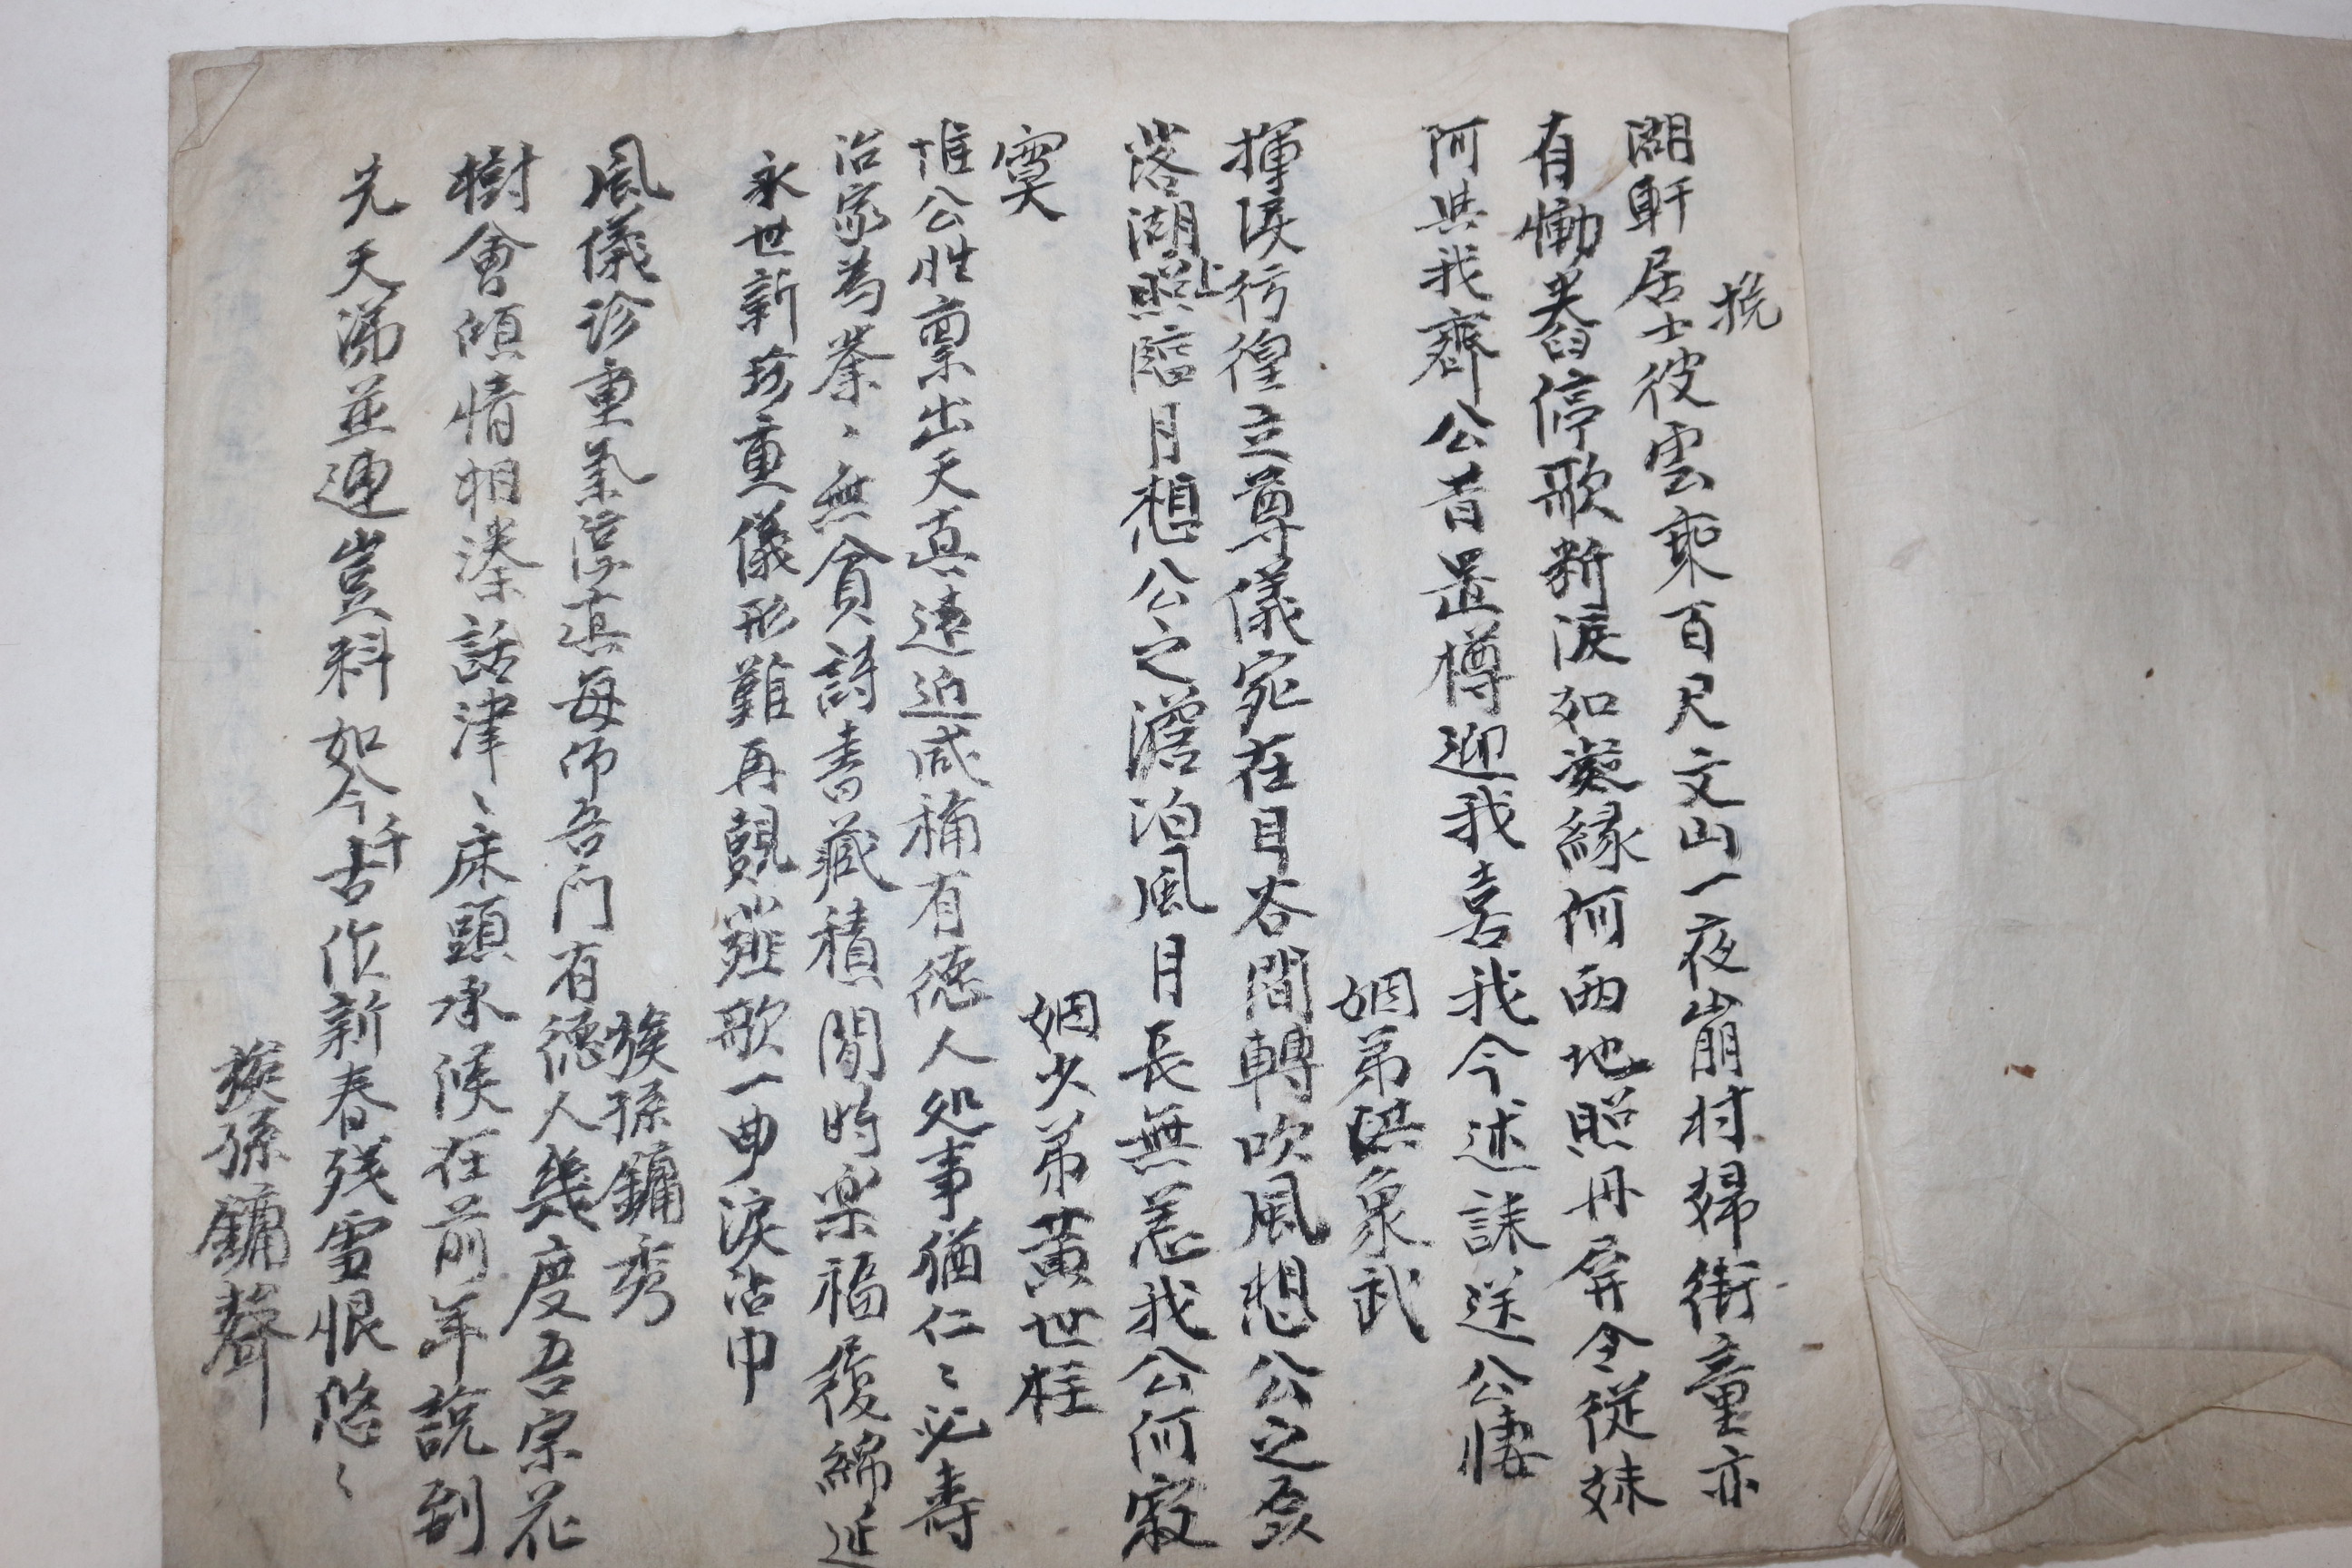 挽
湖軒居士彼雲乘百尺文山一夜崩村婦街童亦
有慟舂停歌斷淚如凝緣何兩地照丹屏令從妹
阿其我齊公昔置樽迎我喜我今述誄送公悽
姻弟洪象武
揮淚行徨立尊儀宛在目谷間轉吹風想公之磊
落湖上照臨月想公之澹泊風月長無恙我公何寂
寞
姻少弟黃世柱
惟公性稟出天真遠近咸稱有德人処事猶仁〻必壽
治家為業〻無貪詩書藏積閒時楽福履綿延
永世新珍重儀形難再覿薤歌一曲淚沾巾
族孫鏞秀
風儀珍重氣淳真每師吾門有德人幾度吾宗花
樹會傾情相湊話津〻床頭承候在前年說到
先天涕並連豈料如今千古作新春殘雪恨悠〻
族孫鏞聲